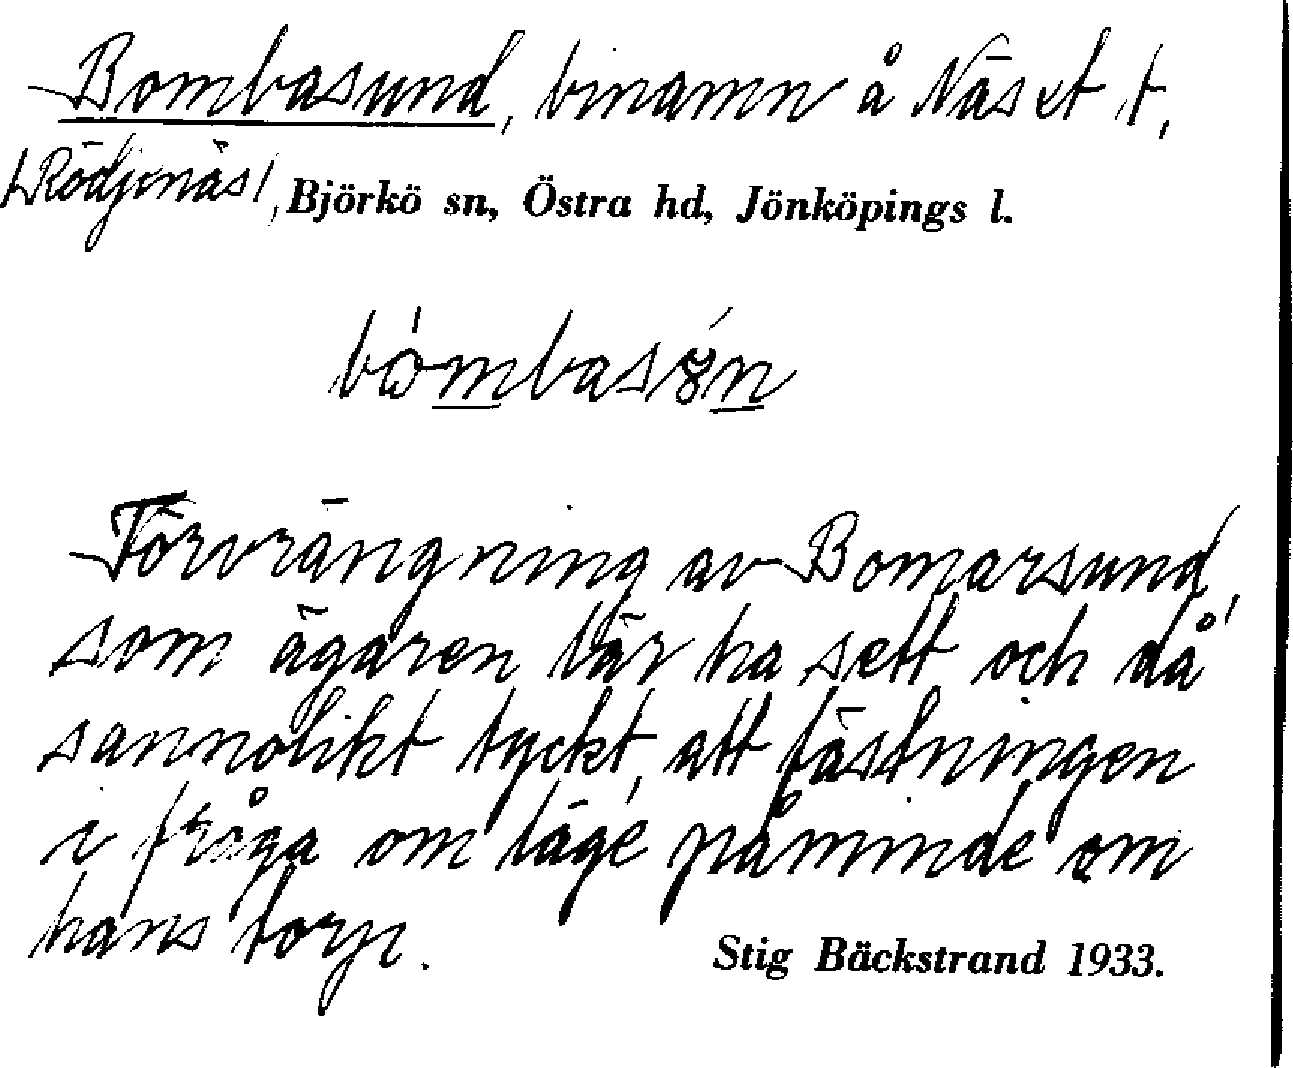 Bombasund, binamn å Näset t,
Rödjenäs, Björkö sn, Östra hd, Jönköpings l.
Förvrängning av Bomarsund,
som ägaren lär ha sett och då
sannolikt tyckt, att fästningen
i fråga om läge påminde om
hans torp.
Stig Bäckstrand 1933.